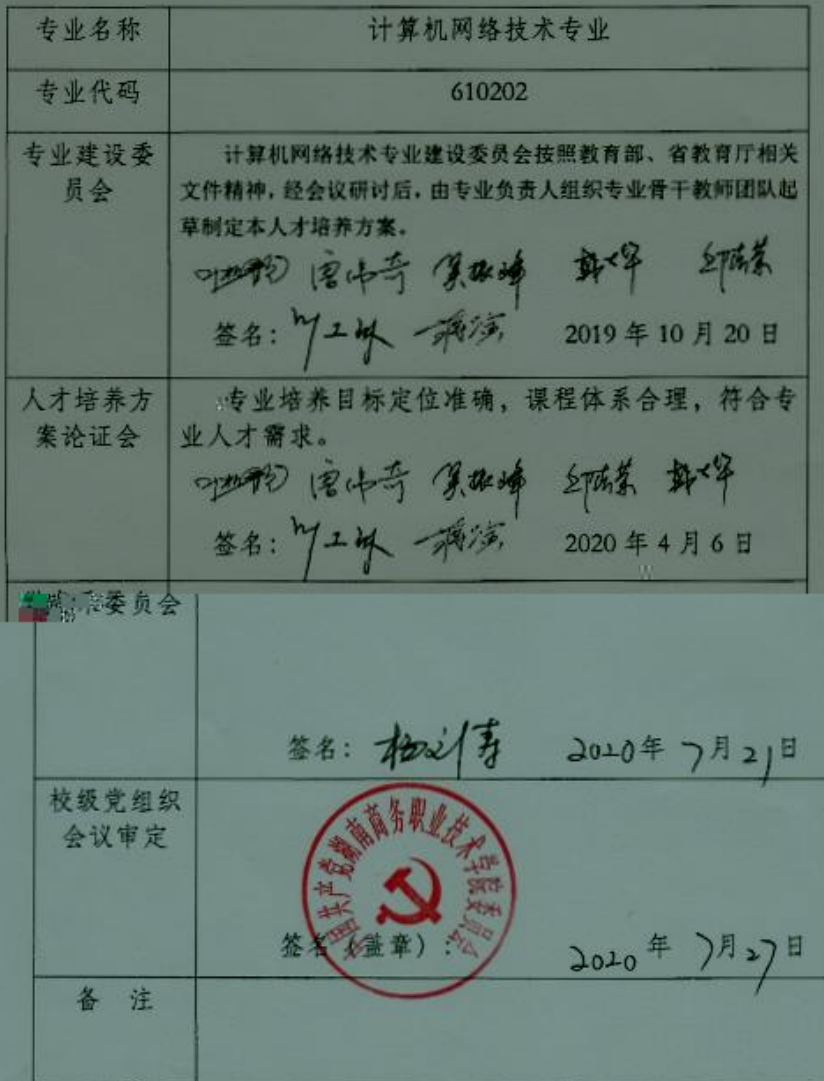 专业名称 计算机网络技术专业
专业代码 610202
专业建设委
员会
计算机网络技术专业建设委员会按照教育部、省教育厅相关
文件精神，经会议研讨后，由专业负责人组织专业骨干教师团队起
草制定本人才培养方案。
唐伟奇 吴振峰
签名： 蒋演 2019 年 10 月 20 日
人才培养方
案论证会
专业培养目标定位准确，课程体系合理，符合专
业人才需求。
唐伟奇 吴振峰
签名： 蒋演 2020 年 4 月 6 日
委员会
签名： 2020年 7月21日
校级党组织
会议审定
中国共产党湖南商务职业技术学院委员会
签名（盖章）： 2020 年 7月27日
备 注